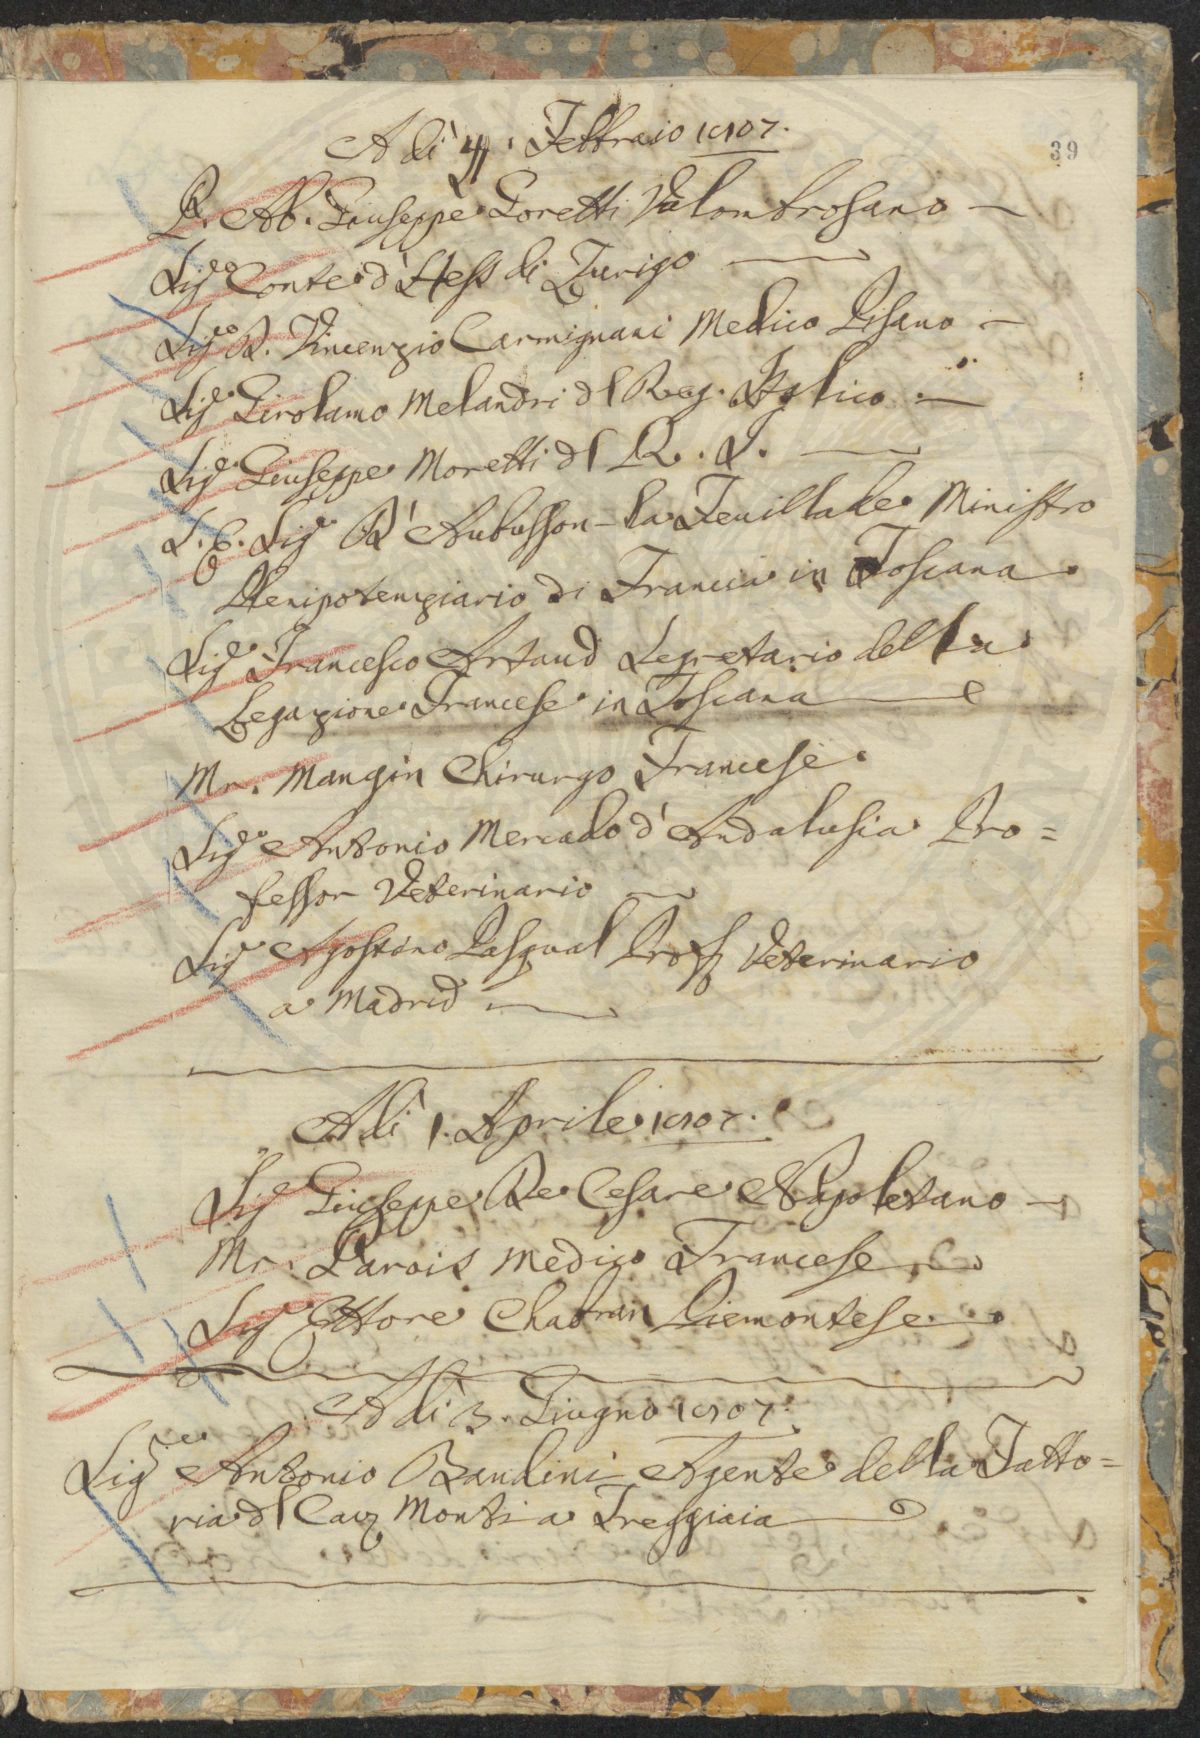 A dì 4. Febbraio 1807.
39
P. Ab. Giuseppe Loretti Valombrosano
Sig.e Conte d'Hess di Zurigo
Sig.e D. Vincenzio Carmignani Medico Pisano
Sig.e Girolamo Melandri dl Reg. Italico
Sig.e Giuseppe Moretti dl R. I.
S. E. Sig.e D'Aubusson-la Feuillade Ministro
Plenipotenziario di Francia in Toscana
Sig.e Francesco Artaud Segretario della
Legazione Francese in Toscana
Mr. Mangin Chirurgo Francese
Sig.e Antonio Mercado d'Andalusia Pro=
fessor Veterinario
Sig.e Agostino Pasqual Prof. Veterinario
a Madrid
A dì 1. Aprile 1807.
Sig.e Giuseppe De Cesare Napoletano
Mr. Parois Medico Francese
Sig.e Ettore Chabran Piemontese
A dì 3. Giugno 1807.
Sig.e Antonio Bandini Agente della Fatto=
ria dl Cav. Monti a Treggiaia